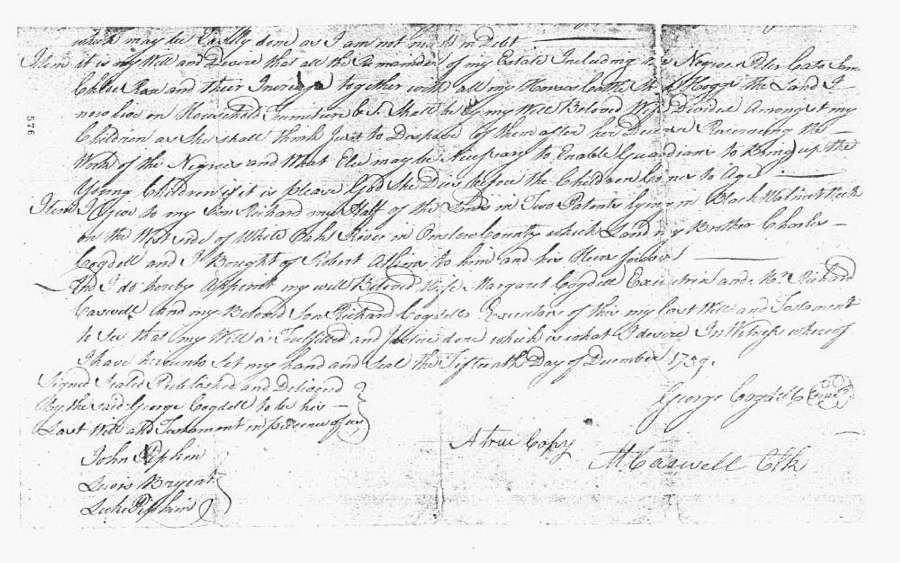 which may be Easilly done as I am not much in Debt
Item it is my Will and Desire that all the Remainder of my Estate Including the Negroes Peter Cato Sam
Chloe Ran and their Increase together with all my Horses Cattle Hogs the Land I
now live on Household Furniture &c Shall be by my Well Beloved Wife Divided Amongst my
Children as She shall think Just to Dispose of them after her Decease Reserving the
Work of the Negroes and What Else may be Necessary to Enable Guardians to Bring up the
Young Children if it is Please God She Dies before the Children Comes to Age
Item I Give to my Son Richard my Half of the Land in Two Patents lying in Back Walnut
on the West side of White Oak River in Onslow County which Land my Brother Charles
Cogdell and I Bought of Robert to him and his Heirs forever
And I do hereby Appoint my well Beloved Wife Margaret Cogdell Executrix and Mr. Richard
Caswell and my Beloved Son Richard Cogdell Executors of this my Last Will and Testament
to See that my Will is Fulfilled and Justice done which is what I desire In Witness whereof
I have hereunto Set my hand and Seal the Fifteenth Day of December 1759.
Signed Sealed Published and Declared
By the said George Cogdell to be his
Last Will and Testament in presence of us
George Cogdell Seal
John Pipkin
Lewis Bryent
Luke Pipkin
A true Copy
M Caswell Clk
576